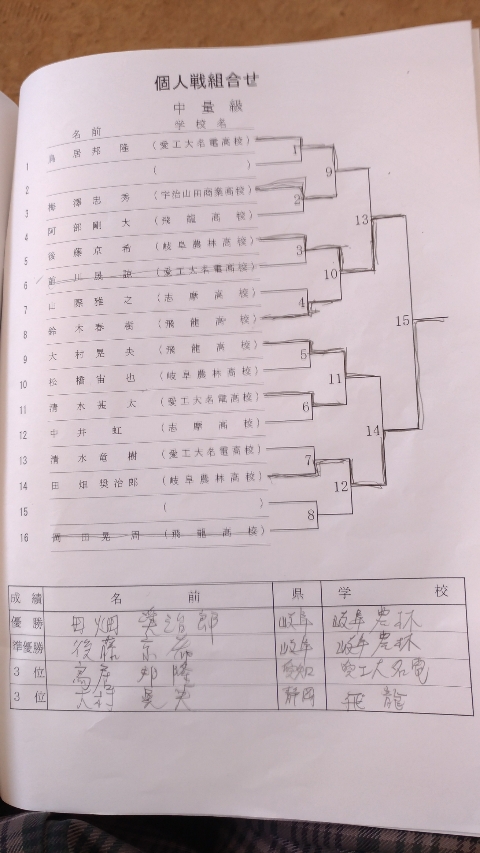 個人戦組合せ
中量級
名前 学校名
1 鳥居邦隆 (愛工大名電高校)
2 ( )
3 梅澤忠秀 (宇治山田商業高校)
4 阿部剛大 (飛龍高校)
5 後藤京希 (岐阜農林高校)
6 前川展諒 (愛工大名電高校)
7 山際雅之 (志摩高校)
8 鈴木春樹 (飛龍高校)
9 大村晃央 (飛龍高校)
10 松橋宙也 (岐阜農林高校)
11 清水甚太 (愛工大名電高校)
12 中井虹 (志摩高校)
13 清水竜樹 (愛工大名電高校)
14 田畑奨治郎 (岐阜農林高校)
15 ( )
16 岡田晃周 (飛龍高校)
1
2
3
4
5
6
7
8
9
10
11
12
13
14
15
成績 名前 県 学校
優勝 田畑 治郎 岐阜 岐阜農林
準優勝 後藤京希 岐阜 岐阜農林
3位 鳥居邦隆 愛知 愛工大名電
3位 大村晃央 静岡 飛龍